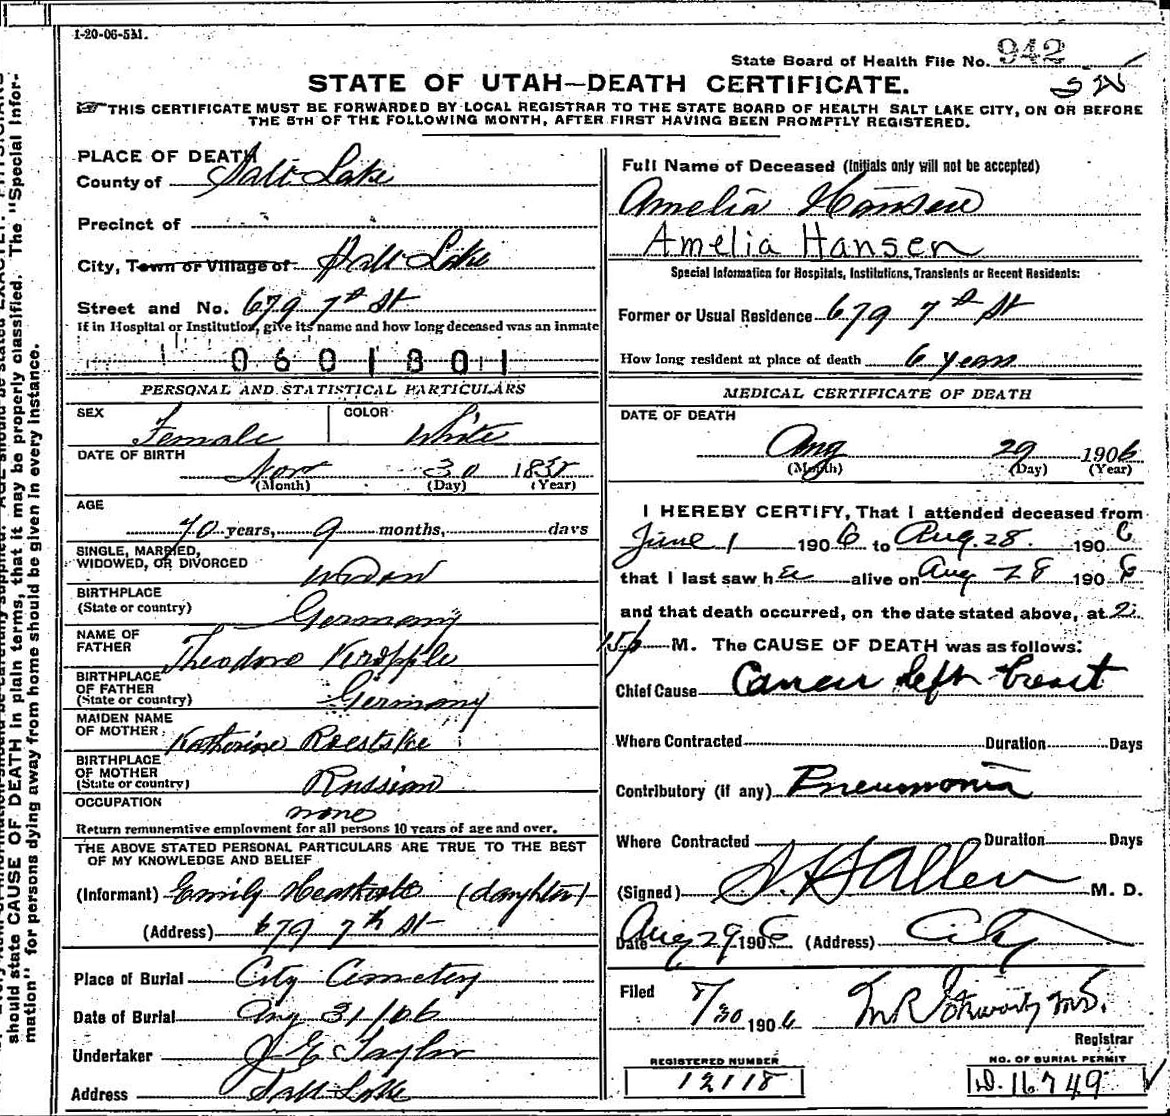 1-20-06-5M.
State Board of Health File No. 942
STATE OF UTAH—DEATH CERTIFICATE.
THIS CERTIFICATE MUST BE FORWARDED BY LOCAL REGISTRAR TO THE STATE BOARD OF HEALTH SALT LAKE CITY, ON OR BEFORE
THE 5TH OF THE FOLLOWING MONTH, AFTER FIRST HAVING BEEN PROMPTLY REGISTERED.
PLACE OF DEATH
County of Salt Lake
Precinct of
City, Town or Village of Salt Lake
Street and No. 679 7th St
If in Hospital or Institution, give its name and how long deceased was an inmate
0601801
PERSONAL AND STATISTICAL PARTICULARS
SEX Female COLOR White
DATE OF BIRTH
Nov 30 183
(Month) (Day) (Year)
AGE
70 years, 9 months, days
SINGLE, MARRIED,
WIDOWED, OR DIVORCED Widow
BIRTHPLACE
(State or country) Germany
NAME OF
FATHER Theodore
BIRTHPLACE
OF FATHER
(State or country) Germany
MAIDEN NAME
OF MOTHER Katherine
BIRTHPLACE
OF MOTHER
(State or country) Russian
OCCUPATION none
Return remunerative employment for all persons 10 years of age and over.
THE ABOVE STATED PERSONAL PARTICULARS ARE TRUE TO THE BEST
OF MY KNOWLEDGE AND BELIEF
(Informant) Emily (daughter)
(Address) 679 7th St
Place of Burial City Cemetery
Date of Burial Aug 31/06
Undertaker J. E. Taylor
Address Salt Lake
Full Name of Deceased (Initials only will not be accepted)
Amelia Hansen
Amelia Hansen
Special Information for Hospitals, Institutions, Transients or Recent Residents:
Former or Usual Residence 679 7th St
How long resident at place of death 6 years
MEDICAL CERTIFICATE OF DEATH
DATE OF DEATH
Aug 29 1906
(Month) (Day) (Year)
I HEREBY CERTIFY, That I attended deceased from
June 1 1906 to Aug. 28. 1906
that I last saw her alive on Aug 28 1906
and that death occurred, on the date stated above, at 2:
15 p M. The CAUSE OF DEATH was as follows:
Chief Cause Cancer left breast
Where Contracted Duration Days
Contributory (if any) Pneumonia
Where Contracted Duration Days
(Signed) Allen M. D.
Date Aug 29 1906 (Address) City
Filed 8/30 1906 M.D.
Registrar
REGISTERED NUMBER
12118
NO. OF BURIAL PERMIT
D. 16749
should state CAUSE OF DEATH in plain terms, that it may be properly classified. The "Special Infor-
mation" for persons dying away from home should be given in every instance.